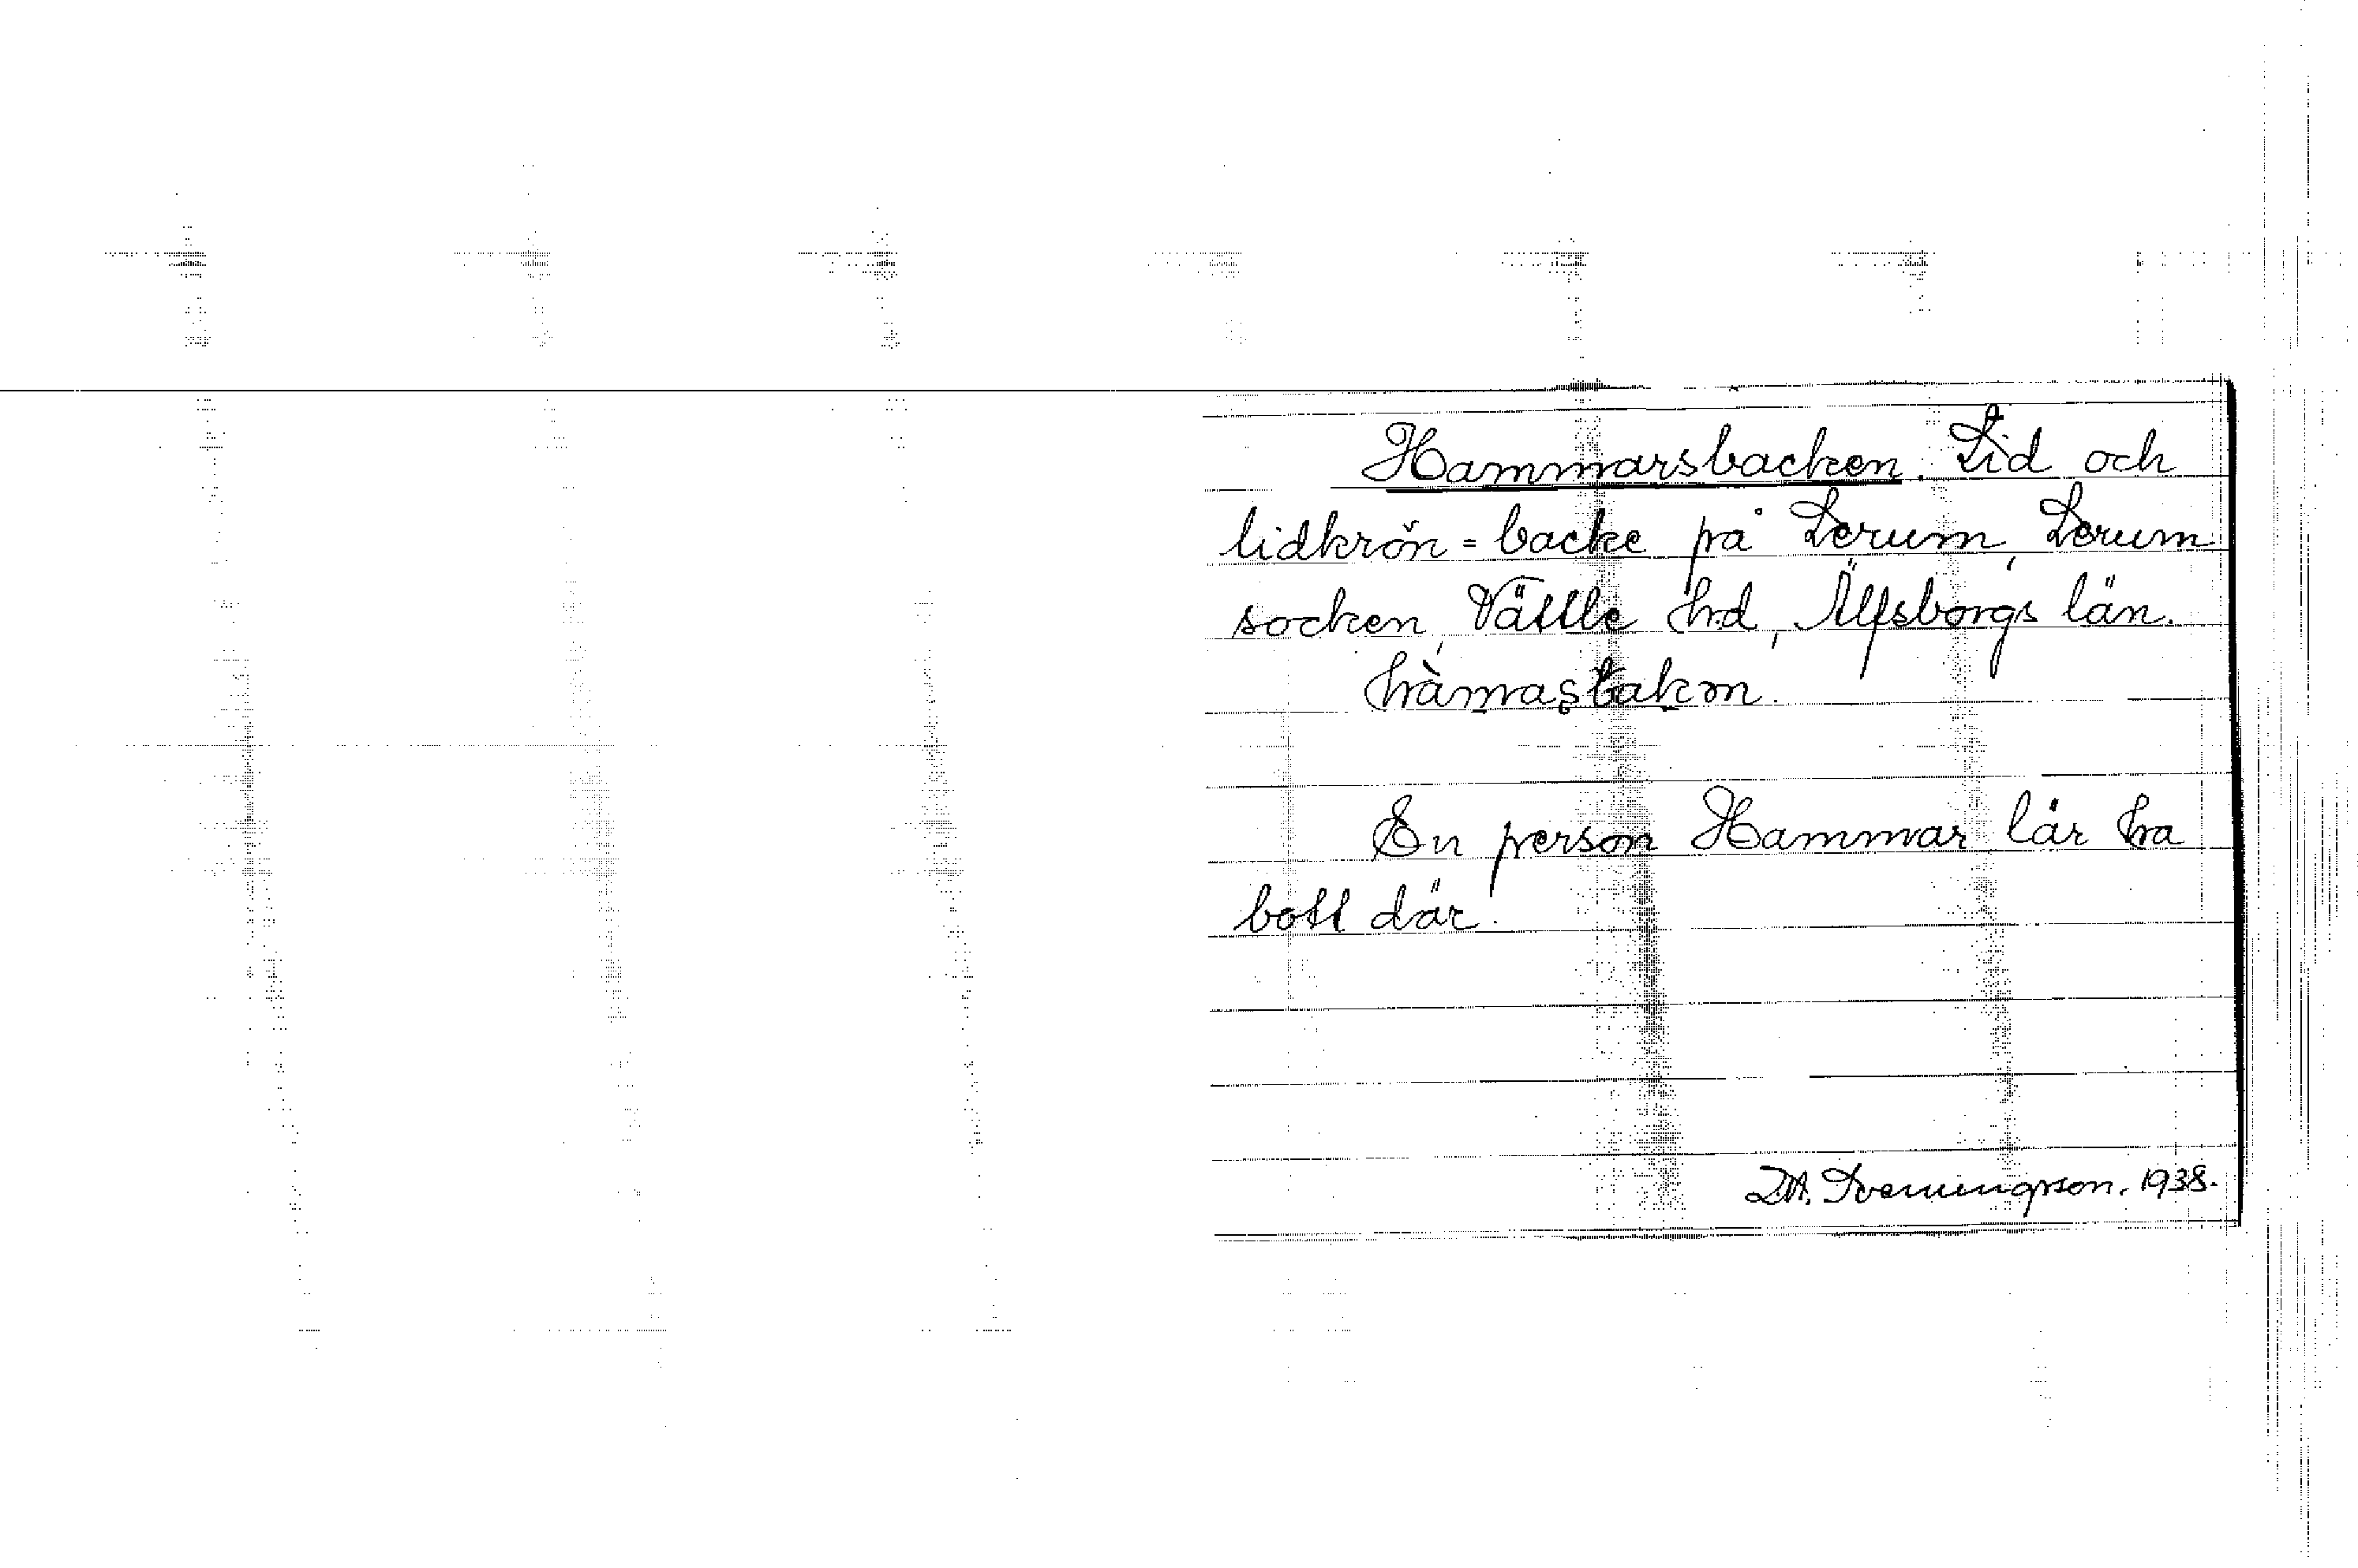 Hammarsbacken. Lid och
lidkrön = backe på Lerum, Lerum
socken, Vättle hd, Älfsborgs län.
hàmas̥bakɔn.
En person Hammar lär ha
bott där.
1938.